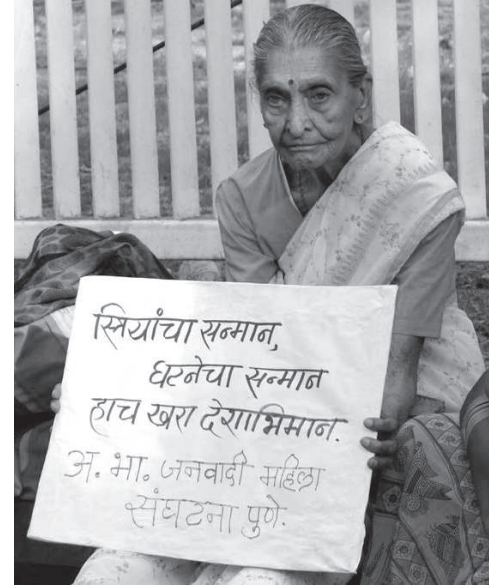 स्त्रियांचा सन्मान,
घटनेचा सन्मान
हाच खरा देशाभिमान.
अ. भा. जनवादी महिला
संघटना पुणे.